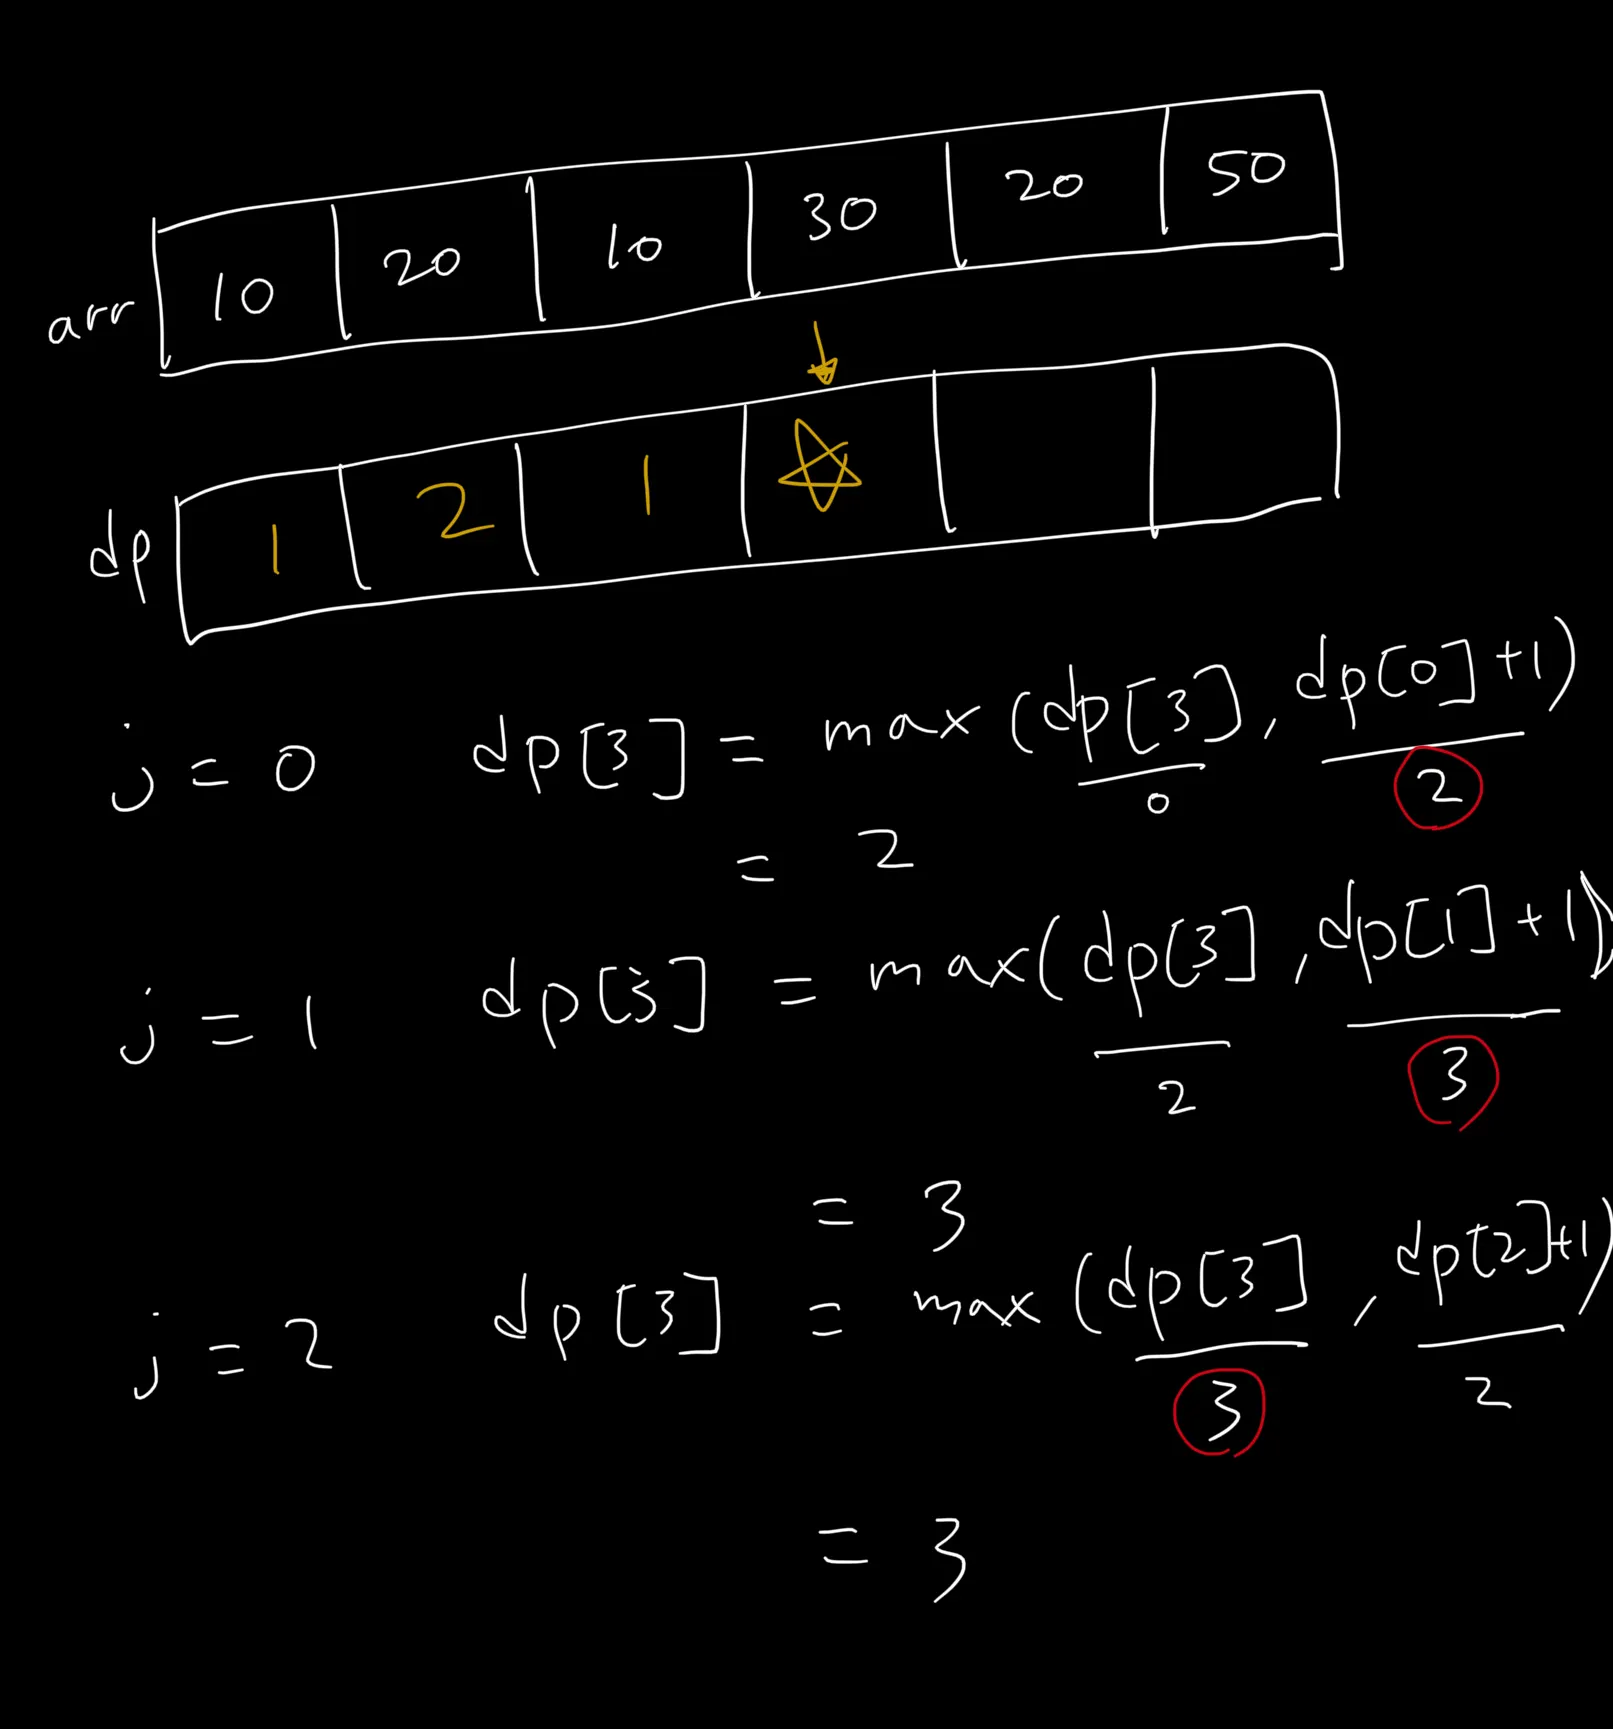 arr 10 20 10 30 20 50
dp 1 2 1
j = 0 dp[3] = max(dp[3], dp[0]+1)
0 2
= 2
j = 1 dp[3] = max(dp[3], dp[1]+1)
2 3
= 3
j = 2 dp[3] = max(dp[3], dp[2]+1)
3 2
= 3